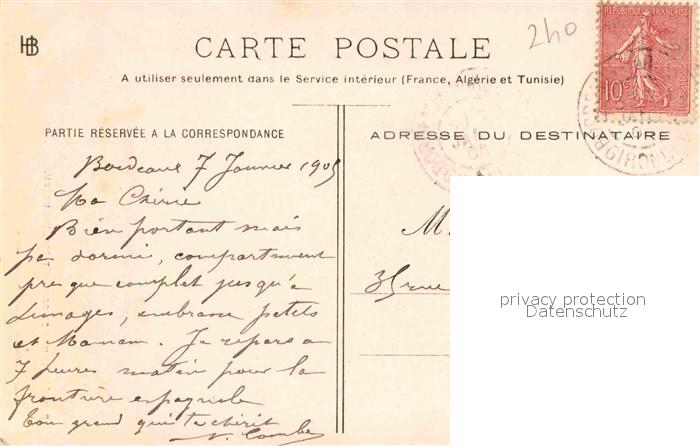 HB
CARTE POSTALE
240
A utiliser seulement dans le Service intérieur (France, Algérie et Tunisie)
RÉPUBLIQUE FRANÇAISE
10c
POSTES
GIRONDE
PARTIE RÉSERVÉE A LA CORRESPONDANCE
Bordeaux 7 Janvier 1905
Ma Chérie
Bien portant mais
pas dormi, compartiment
presque complet jusqu'à
Limoges, embrasse petits
et Maman. Je repars a
7 heures matin pour la
frontière espagnole
Ton grand qui te chérit
ADRESSE DU DESTINATAIRE
M.
35 rue
privacy protection
Datenschutz